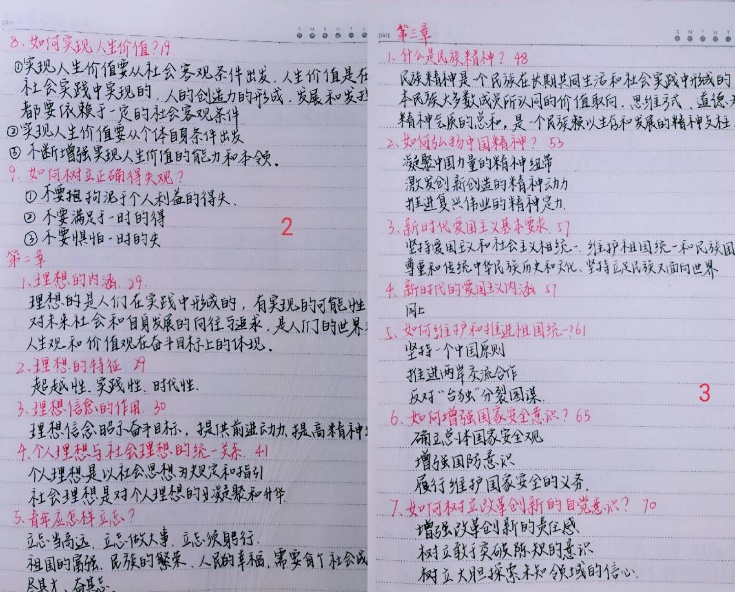 8. 如何实现人生价值? 19
①实现人生价值要从社会客观条件出发，人生价值是在
社会实践中实现的，人的创造力的形成、发展和发挥
都要依赖于一定的社会客观条件
②实现人生价值要从个体自身条件出发
③不断增强实现人生价值的能力和本领。
9. 如何树立正确得失观?
①不要拘泥于个人利益的得失.
②不要满足于一时的得
③不要惧怕一时的失
2
第二章
1. 理想的内涵 29.
理想的是人们在实践中形成的，有实现的可能性
对未来社会和自身发展的向往与追求，是人们的世界
人生观和价值观在奋斗目标上的体现。
2. 理想的特征 29
超越性. 实践性. 时代性.
3. 理想信念的作用 30
理想信念昭示奋斗目标，提供前进动力，提高精神
4. 个人理想与社会理想的统一关系. 41
个人理想是以社会思想为规定和指引
社会理想是对个人理想的凝聚和升华
5. 青年应怎样立志?
立志当高远. 立志做大事. 立志须躬行.
祖国的富强、民族的繁荣、人民的幸福，需要有个社会成
尽其才、奋其志.
DATE
S M T W T
第三章
1. 什么是民族精神? 48
民族精神是一个民族在长期共同生活和社会实践中形成的
本民族大多数成员所认同的价值取向、思维方式、道德
精神气质的总和，是一个民族赖以生存和发展的精神支柱
2. 如何弘扬中国精神? 53
凝聚中国力量的精神纽带
激发创新创造的精神动力
推进复兴伟业的精神定力
3. 新时代爱国主义基本要求. 57
坚持爱国主义和社会主义相统一、维护祖国统一和民族团
尊重和传统中华民族历史和文化、坚持立足民族又面向世界
4. 新时代的爱国主义内涵 57
同上
5. 如何维护和推进祖国统一? 61
坚持一个中国原则
推进两岸交流合作
反对“台独”分裂图谋.
3
6. 如何增强国家安全意识? 65
确立总体国家安全观
增强国防意识
履行维护国家安全的义务.
7. 如何树立改革创新的自觉意识? 70
增强改革创新的责任感
树立敢于突破陈规的意识
树立大胆探索未知领域的信心.